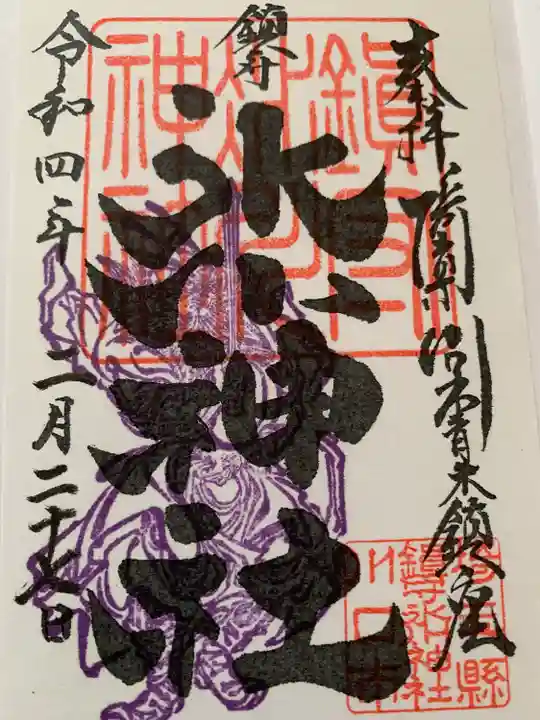 奉拝
青木鎮座
鎮守
氷川神社
令和四年二月二十七日
鎮守
神社
埼玉縣
鎮守氷川神社
川口市